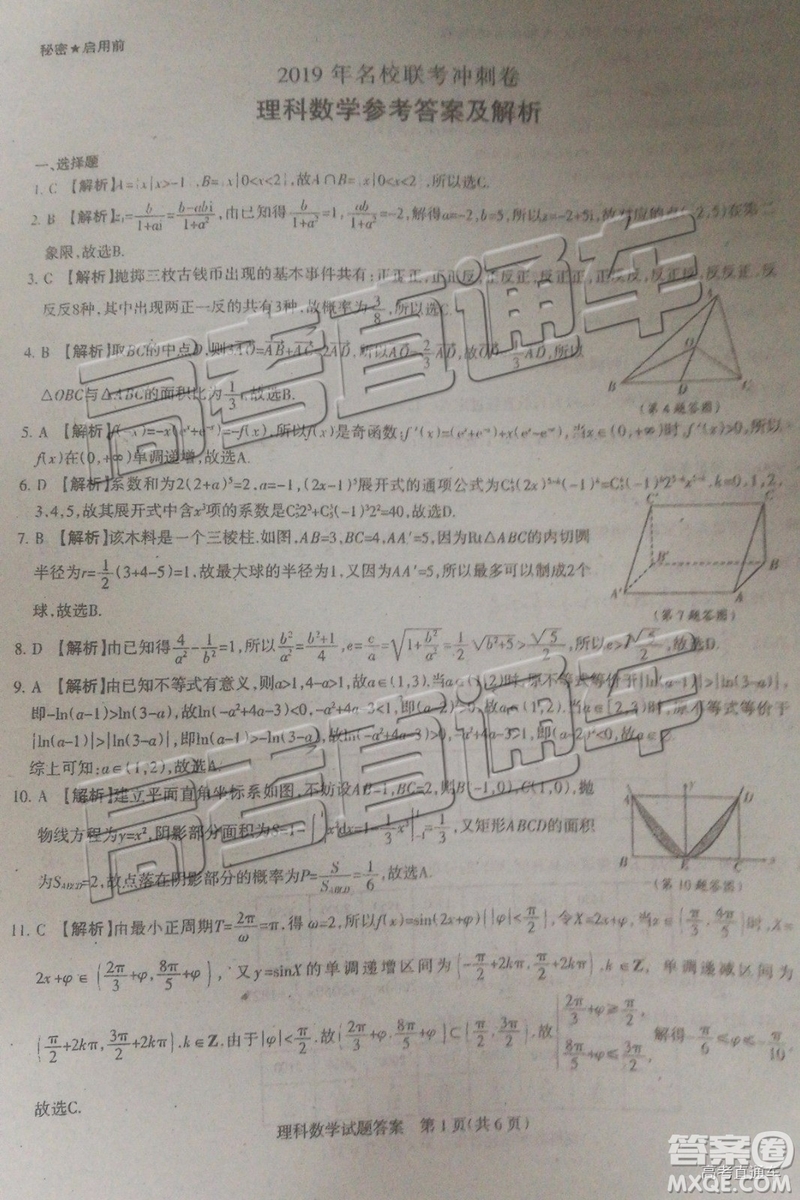 秘密★启用前
2019 年名校联考冲刺卷
理科数学参考答案及解析
一、选择题
1. C 【解析】A={x|x>-1},B={x|0<x<2},故A∩B={x|0<x<2},所以选C.
2. B 【解析】z₁=b/(1+ai)=(b-abi)/(1+a²),由已知得b/(1+a²)=1,ab/(1+a²)=-2,解得a=-2,b=5,所以z=-2+5i,故对应的点(-2,5)在第二
象限,故选B.
3. C 【解析】抛掷三枚古钱币出现的基本事件共有:正正正,正正反,
反反8种,其中出现两正一反的共有3种,故概率为3/8,所以选C.
4. B 【解析】取BC的中点D,则
△OBC与△ABC的面积比为1/3,故选B.
B D C
(第4题答图)
5. A 【解析】f(-x)=-x(eˣ+e⁻ˣ)=-f(x),所以f(x)是奇函数;f′(x)=(eˣ+e⁻ˣ)+x(eˣ-e⁻ˣ),当x∈(0,+∞)时,
f(x)在(0,+∞)单调递增,故选A.
6. D 【解析】系数和为2(2+a)⁵=2,a=-1,(2x-1)⁵展开式的通项公式为 k=0,1,2,
3,4,5,故其展开式中含x³项的系数是 =40,故选D.
7. B 【解析】该木料是一个三棱柱.如图,AB=3,BC=4,AA′=5,因为Rt△ABC的内切圆
半径为r=1/2(3+4-5)=1,故最大球的半径为1,又因为AA′=5,所以最多可以制成2个
球,故选B.
C′ C B′ B A′ A
(第7题答图)
8. D 【解析】由已知得4/a²-1/b²=1,所以b²/a²=(b²+1)/4,e=c/a=√(1+b²/a²)=1/2√(b²+5)>√5/2,所以e>√5/2,故选D.
9. A 【解析】由已知不等式有意义,则a>1,4-a>1,故a∈(1,3).当a∈(1,2)时,原不等式等价于|ln(a-1)|>|ln(3-a)|,
即-ln(a-1)>ln(3-a),故ln(-a²+4a-3)<0,-a²+4a-3<1,即(a-2)²>0,故a∈(1,2).当a∈[2,3)时,原不等式等价于
|ln(a-1)|>|ln(3-a)|,即ln(a-1)>-ln(3-a),故ln(-a²+4a-3)>0,
综上可知:a∈(1,2),故选A.
10. A 【解析】建立平面直角坐标系如图,不妨设AB=1,BC=2,则B(-1,0),C(1,0),抛
物线方程为y=x²,阴影部分面积为 =1/3,又矩形ABCD的面积
为S=2,故点落在阴影部分的概率为P= =1/6,故选A.
A y D
B E C x
(第10题答图)
11. C 【解析】由最小正周期T=2π/ω=π,得ω=2,所以f(x)=sin(2x+φ)(|φ|<π/2),令X=2x+φ,当x∈(π/3,4π/5)时,X=
2x+φ∈(2π/3+φ,8π/5+φ),又y=sinX的单调递增区间为(-π/2+2kπ,π/2+2kπ),单调递减区间为
(π/2+2kπ,3π/2+2kπ),k∈Z,由于|φ|<π/2,故(2π/3+φ,8π/5+φ)⊂(π/2,3π/2),故{2π/3+φ≥π/2, 8π/5+φ≤3π/2,解得-π/6≤φ≤-π/10
故选C.
理科数学试题答案 第1页(共6页)
高考直通车
高考直通车
答案圈
高考直通车
MXQE.COM